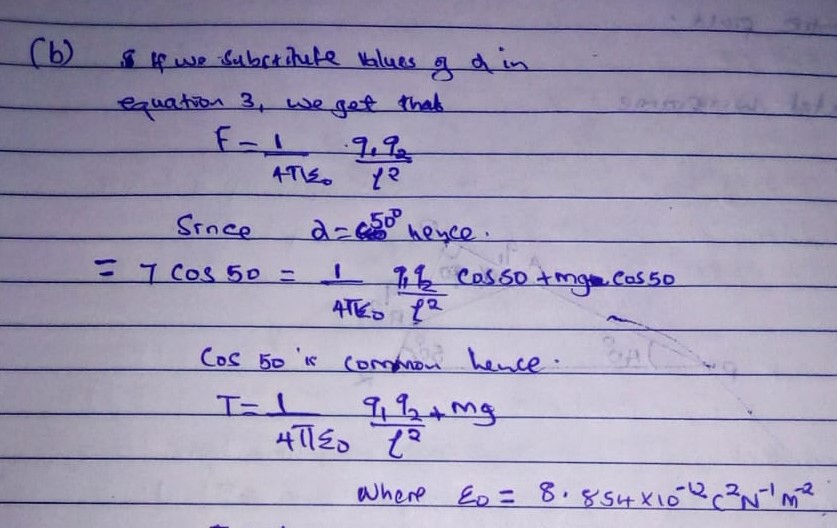 (b) If we substitute values of α in
equation 3, we get that
F = 1/4πε₀ · q₁q₂/ℓ²
Since α = 50° hence.
= T cos 50 = 1/4πε₀ q₁q₂/ℓ² cos 50 + mg cos 50
Cos 50 is common hence.
T = 1/4πε₀ q₁q₂/ℓ² + mg
where ε₀ = 8.854 × 10⁻¹² C² N⁻¹ m⁻²